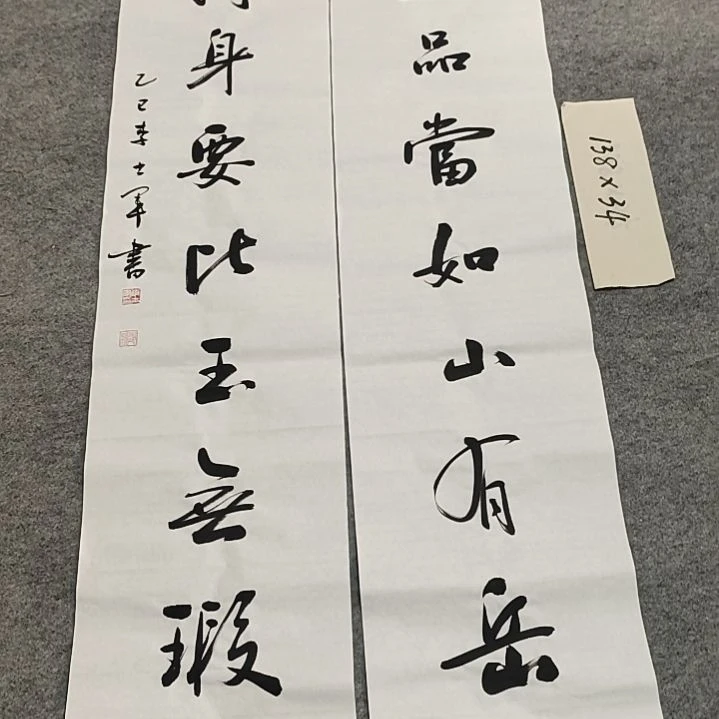 品當如山有岳
身要比玉無瑕
乙巳李士軍書
138×34